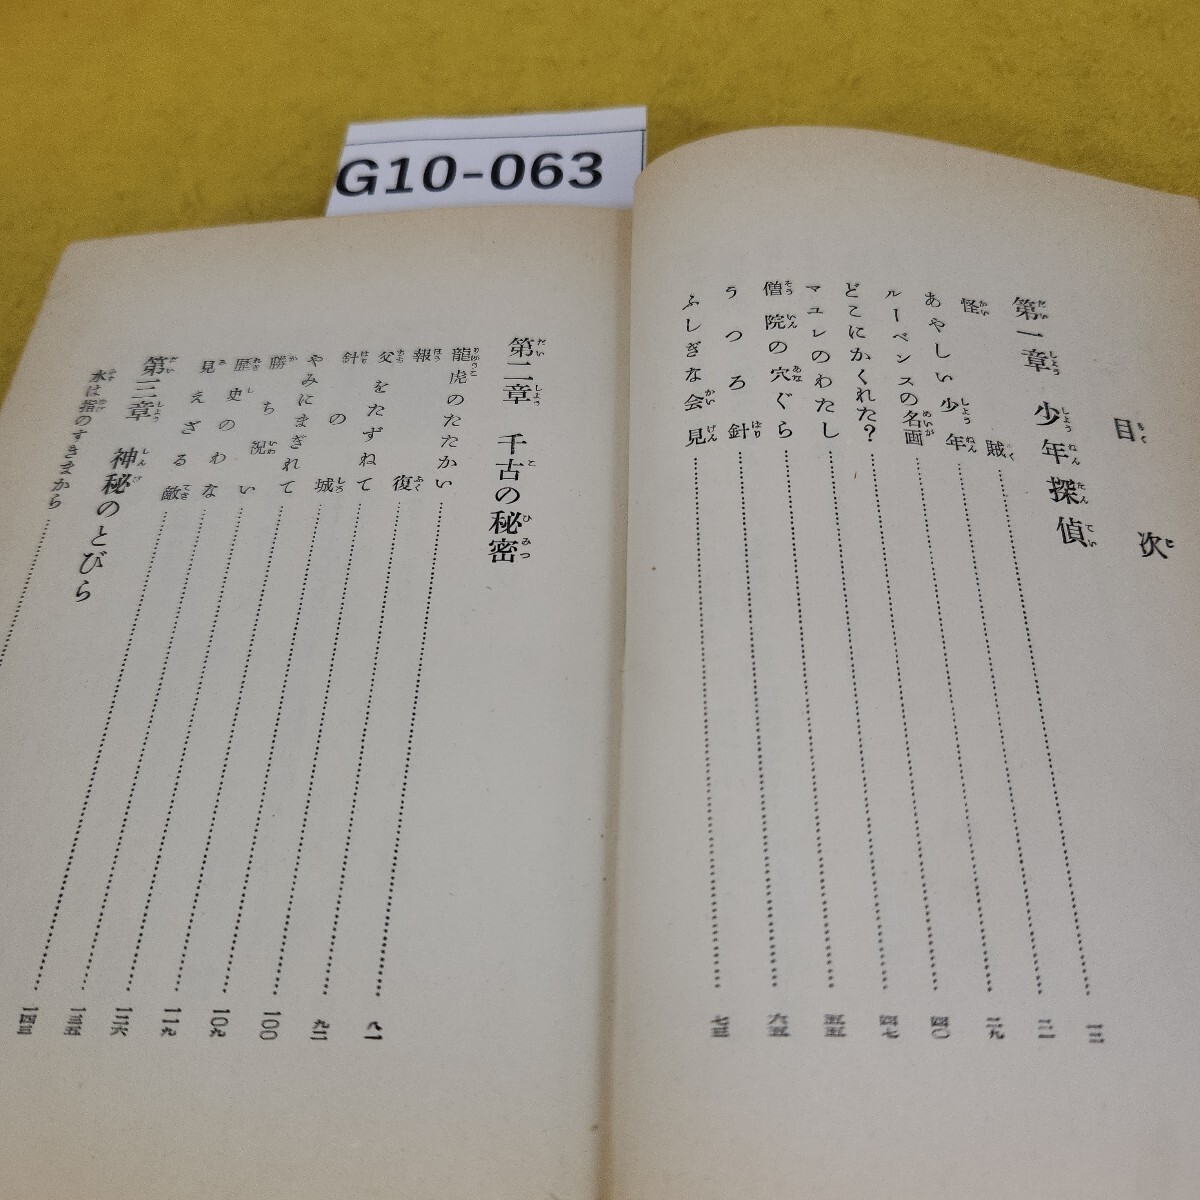 G10-063
目次
第一章 少年探偵
怪賊……一三
あやしい少年……二一
ルーベンスの名画……二九
どこにかくれた?……四〇
マユレのわたし……四七
僧院の穴ぐら……五五
うつろ針……六五
ふしぎな会見……七三
第二章 千古の秘密
龍虎のたたかい……八一
報復……九二
父をたずねて……一〇〇
針の城……一〇九
やみにまぎれて……一一九
勝ち祝い……一二六
歴史のわな……一三五
見えざる敵……一四三
第三章 神秘のとびら
水は指のすきまから……